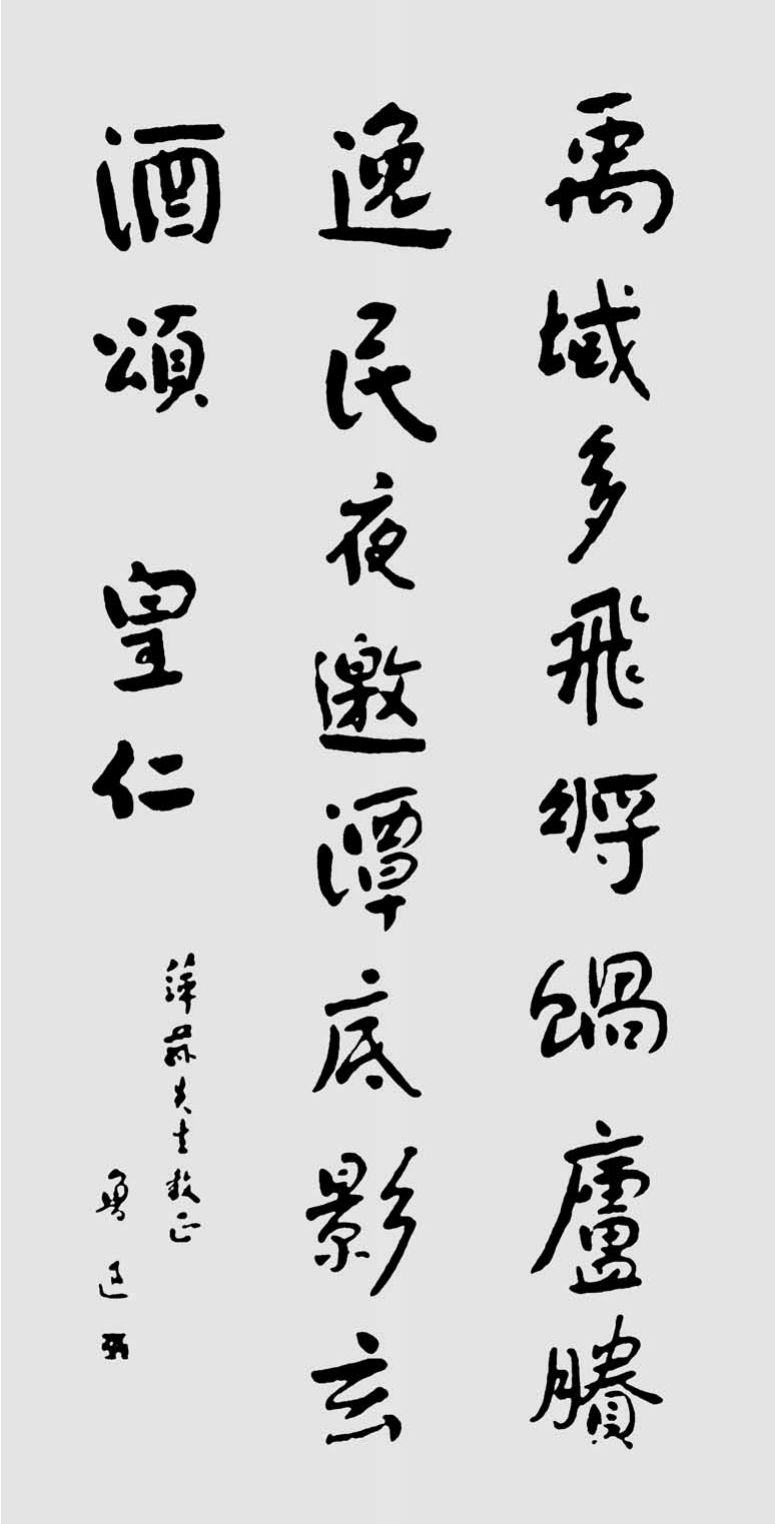 禹域多飛將蝸廬賸
逸民夜邀潭底影玄
酒頌 皇仁
萍蓀先生教正
魯迅